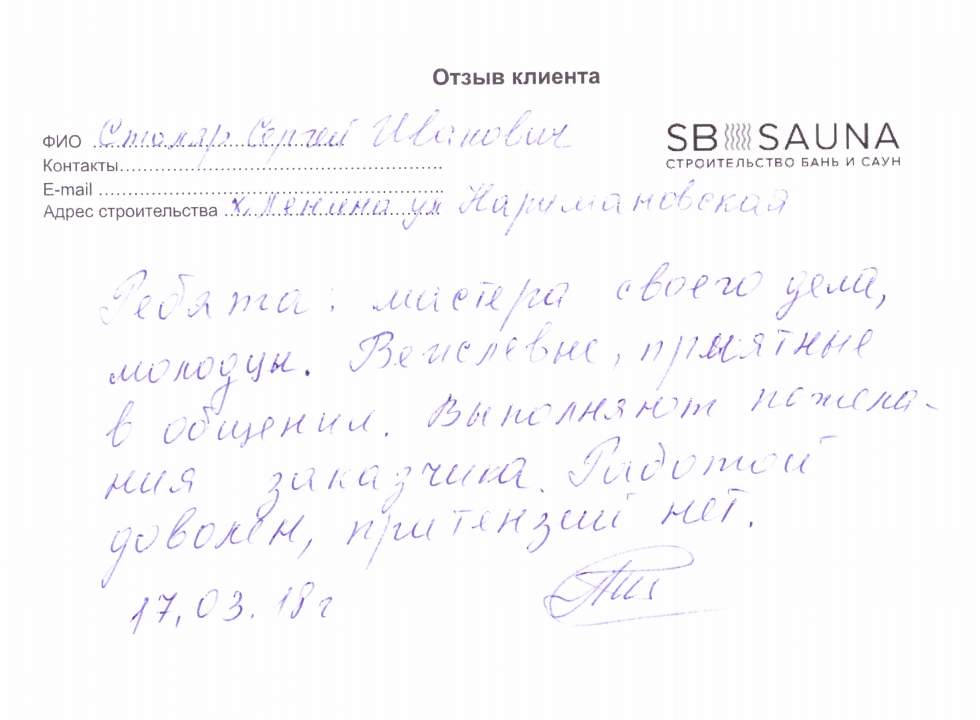 Отзыв клиента
ФИО Столяр Сергей Иванович
SB SAUNA
СТРОИТЕЛЬСТВО БАНЬ И САУН
Контакты
E-mail
Адрес строительства х. Ленина ул Наримановская
Ребята: мастера своего дела,
молодцы. Вежлевые, приятные
в общении. Выполняют пожела-
ния заказчика. Работой
доволен, притензий нет.
17.03.18г